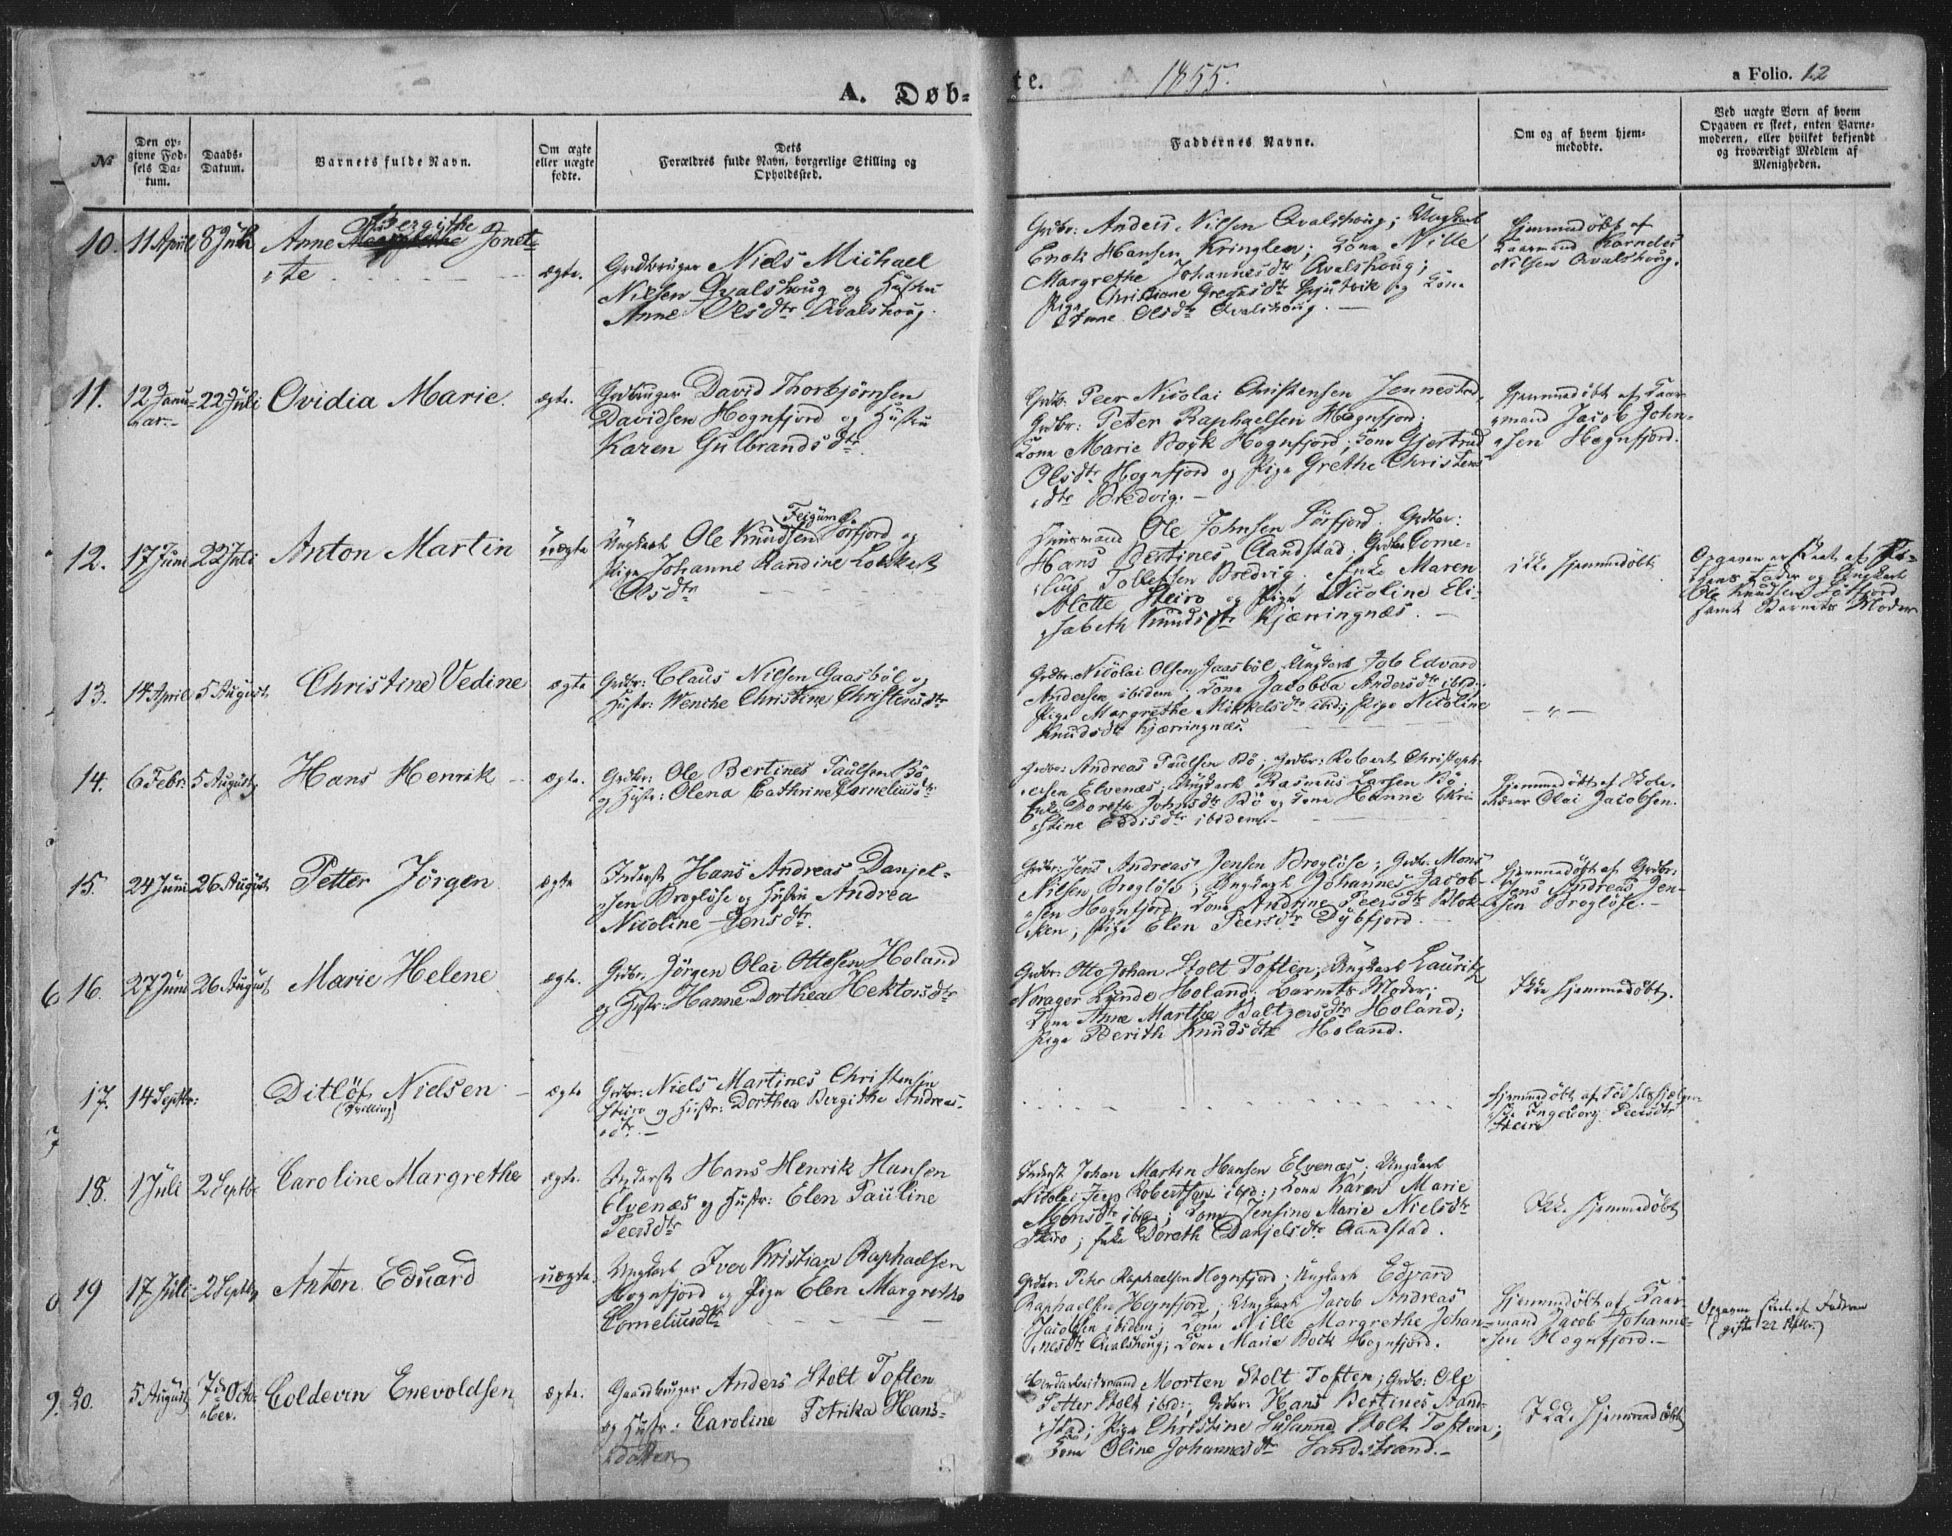 A. Døb-
te. 1855. a Folio. 12
No
Den op-
givne Fød-
sels Da-
tum.
Daabs-
Datum.
Barnets fulde Navn.
Om ægte
eller uægte
fødte.
Dets
Forældres fulde Navn, borgerlige Stilling og
Opholdssted.
Faddernes Navne.
Om og af hvem hjem-
medøbte.
Ved uægte Born af hvem
Opgaven er skeet, enten Barne-
moderen, eller hvilket bekjendt
og troværdigt Medlem af
Menigheden.
10. 11 April 8 Juli Anne Bergithe Jonet-
te
ægte.
Grdbruger Niels Michael
Nielsen Qvalshoug og Hustru
Anne Olsdtr Qvalshoug.
Grbr: Anders Nilsen Qvalshoug; Ungkarl
Enok Hansen Kringlen; Kone Nille
Margrethe Johannesdtr Qvalshoug;
Pige Christiane
Anne Olsdtr Qvalshoug. —
Hjemmedøbt af
Kornelius
Nilsen Qvalshoug.
11. 12 Janu-
ar.
22 Juli Ovidia Marie. ægte.
Grdbruger David Thorbjørnsen
Davidsen Hognfjord og Hustru
Karen Gulbrandsdtr.
Grdb. Peer Nicolai Christensen Jennestad,
Grdbr: Peter Raphaelsen Hognfjord;
Kone Marie Bock Hognfjord; Kone Gjertrud
Olsdtr Hognfjord og Pige Grethe Christens-
dtr Bredvig. —
Hjemmedøbt af Kaar-
mand Jacob John-
sen Hognfjord.
12. 17 Juni 22 Juli Anton Martin uægte
Ungkarl Ole Knudsen Sørfjord og
Pige Johanne Randine
Olsdtr
Huusmand Ole Johnsen Sørfjord. Grdbr:
Hans Bertines Aandstad; Grdbr Corne-
lius Tollefsen Bredvig; Enke Maren
Alette Steiro og Pige Nicoline Eli-
sabeth Knudsdtr Kjærringnæs. —
ikke hjemmedøbt
Opgaven er skeet af
Fader og Ungkarl
Ole Knudsen Sørfjord
samt Barnets Moder
13. 14 April 5 August Christine Vedine ægte
Grdbr: Claus Nilsen Gaasbøl og
Hustr: Wenche Christine Christensdtr
Grdbr: Nicolai Olsen Gaasbøl, Ungkarl Job Edvard
Andersen ibidem; Kone Jacobea Andersdtr ibid.;
Pige Margrethe Mikkelsdtr ibid; Pige Nicoline
Knudsdtr Kjærringnæs.
— " —
14. 6 Febr: 5 August Hans Henrik ægte.
Grdbr: Ole Bertines Paulsen Bø
og Hustr: Olena Cathrine Corneliusdtr
Grdbr: Andreas Paulsen Bø; Grdbr: Robert Christoph-
ersen Elvenæs; Ungkarl Rasmus Larsen Bø
Enke Doreth Johnsdtr Bø og Kone Hanne Chri-
stine Eddisdtr ibidem. —
Hjemmedøbt af Skole-
lærer Olai Jacobsen.
15. 24 Juni 26 August Petter Jörgen ægte
Inderst Hans Andreas Danjel-
sen Brogløse og Hustru Andrea
Nicoline Jensdtr.
Grdbr: Jens Andreas Jensen Brogløse; Grdb. Mons
Nilsen Brogløse; Ungkarl Johannes Jacob-
sen Hognfjord; Kone Andrine Peersdtr Blok-
ken; Pige Elen Peersdtr Dybfjord
Hjemmedøbt af Grdbr:
Jens Andreas Jen-
sen Brogløse. —
16. 27 Juni 26 August Marie Helene ægte.
Grdbr: Jörgen Olai Ottesen Holand
og Hustr: Hanne Dorthea Hektorsdtr
Grdbr: Otto Johan Stolt Toften; Ungkarl Lauritz
Norager Lunde Holand; Barnets Moder;
Kone Anne Marthe Baltzersdtr Holand;
Pige Berith Knudsdtr Holand.
Ikke hjemmedøbt.
17. 14 Septbr: Ditløf Nielsen
(Tvilling)
ægte
Grdbr: Niels Martines Christensen
Steiro og Hustr: Dorthea Bergithe Andreas-
dtr. —
Hjemmedøbt af Fødselshjælper-
ske Ingeborg Peersdtr
Steiro
18. 1 Juli 2 Septbr Caroline Margrethe ægte.
Inderst Hans Henrik Hansen
Elvenæs og Hustr: Elen Pauline
Peersdtr
Inderst Johan Martin Hansen Elvenæs; Ungkarl
Nicolai Jeep Robertsen ibid:; Kone Karen Marie
Monsdtr ibid; Kone Jensine Marie Nielsdtr
Steiro; Enke Doreth Danjelsdtr Aandstad.
Ikke hjemmedøbt
19 17 Juli 2 Septbr Anton Eduard uægte.
Ungkarl Iver Kristian Raphaelsen
Hognfjord og Pige Elen Margrethe
Corneliusdtr
Grdbr: Peter Raphaelsen Hognfjord; Ungkarl Edvard
Raphaelsen Hognfjord; Ungkarl Jacob Andreas
Jacobsen ibidem; Kone Nille Margrethe Johan-
nesdtr Qvalshoug; Kone Marie Bock Hognfjord.
Hjemmedøbt af Kaar-
mand Jacob Johanne-
sen Hognfjord. —
Opgaven skeet af Faderen
(gifte 22 Septbr.)
20. 5 August 7de Octo-
ber.
Coldevin Enevoldsen ægte.
Gaardbruger Anders Stolt Toften
og Hustr: Caroline Petrika Hans-
datter
Jordarbeidsmand Morten Stolt Toften; Grdb: Ole
Petter Stolt ibid:; Grdbr: Hans Bertines Aand-
stad; Pige Christine Susanna Stolt Toften;
Kone Oline Johannesdtr Sandstrand. —
Ikke hjemmedøbt